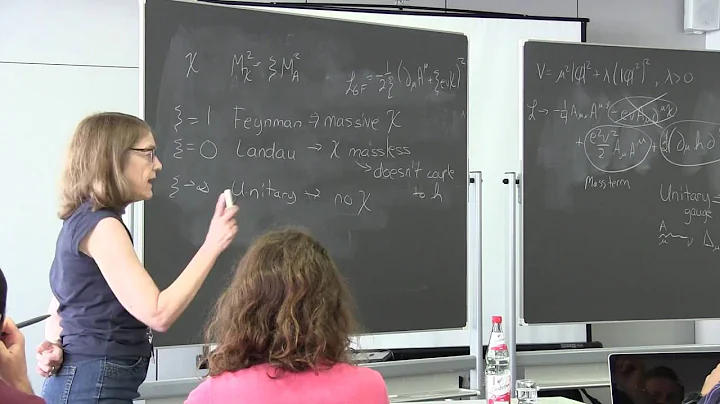 χ M_χ^2 = ξ M_A^2
L_GF = -1/2ξ (∂_μ A^μ + ξ e v χ)^2
ξ = 1 Feynman → massive χ
ξ = 0 Landau → χ massless
→ doesn't couple
to h
ξ → ∞ Unitary → no χ
V = μ^2 |φ|^2 + λ (|φ|^2)^2, λ > 0
L → -1/4 A_μν A^μν - e v A_μ ∂^μ χ
+ e^2 v^2/2 A_μ A^μ + 1/2 (∂_μ h ∂
Mass term
Unitary
gauge
A
μ ν Δ_μ